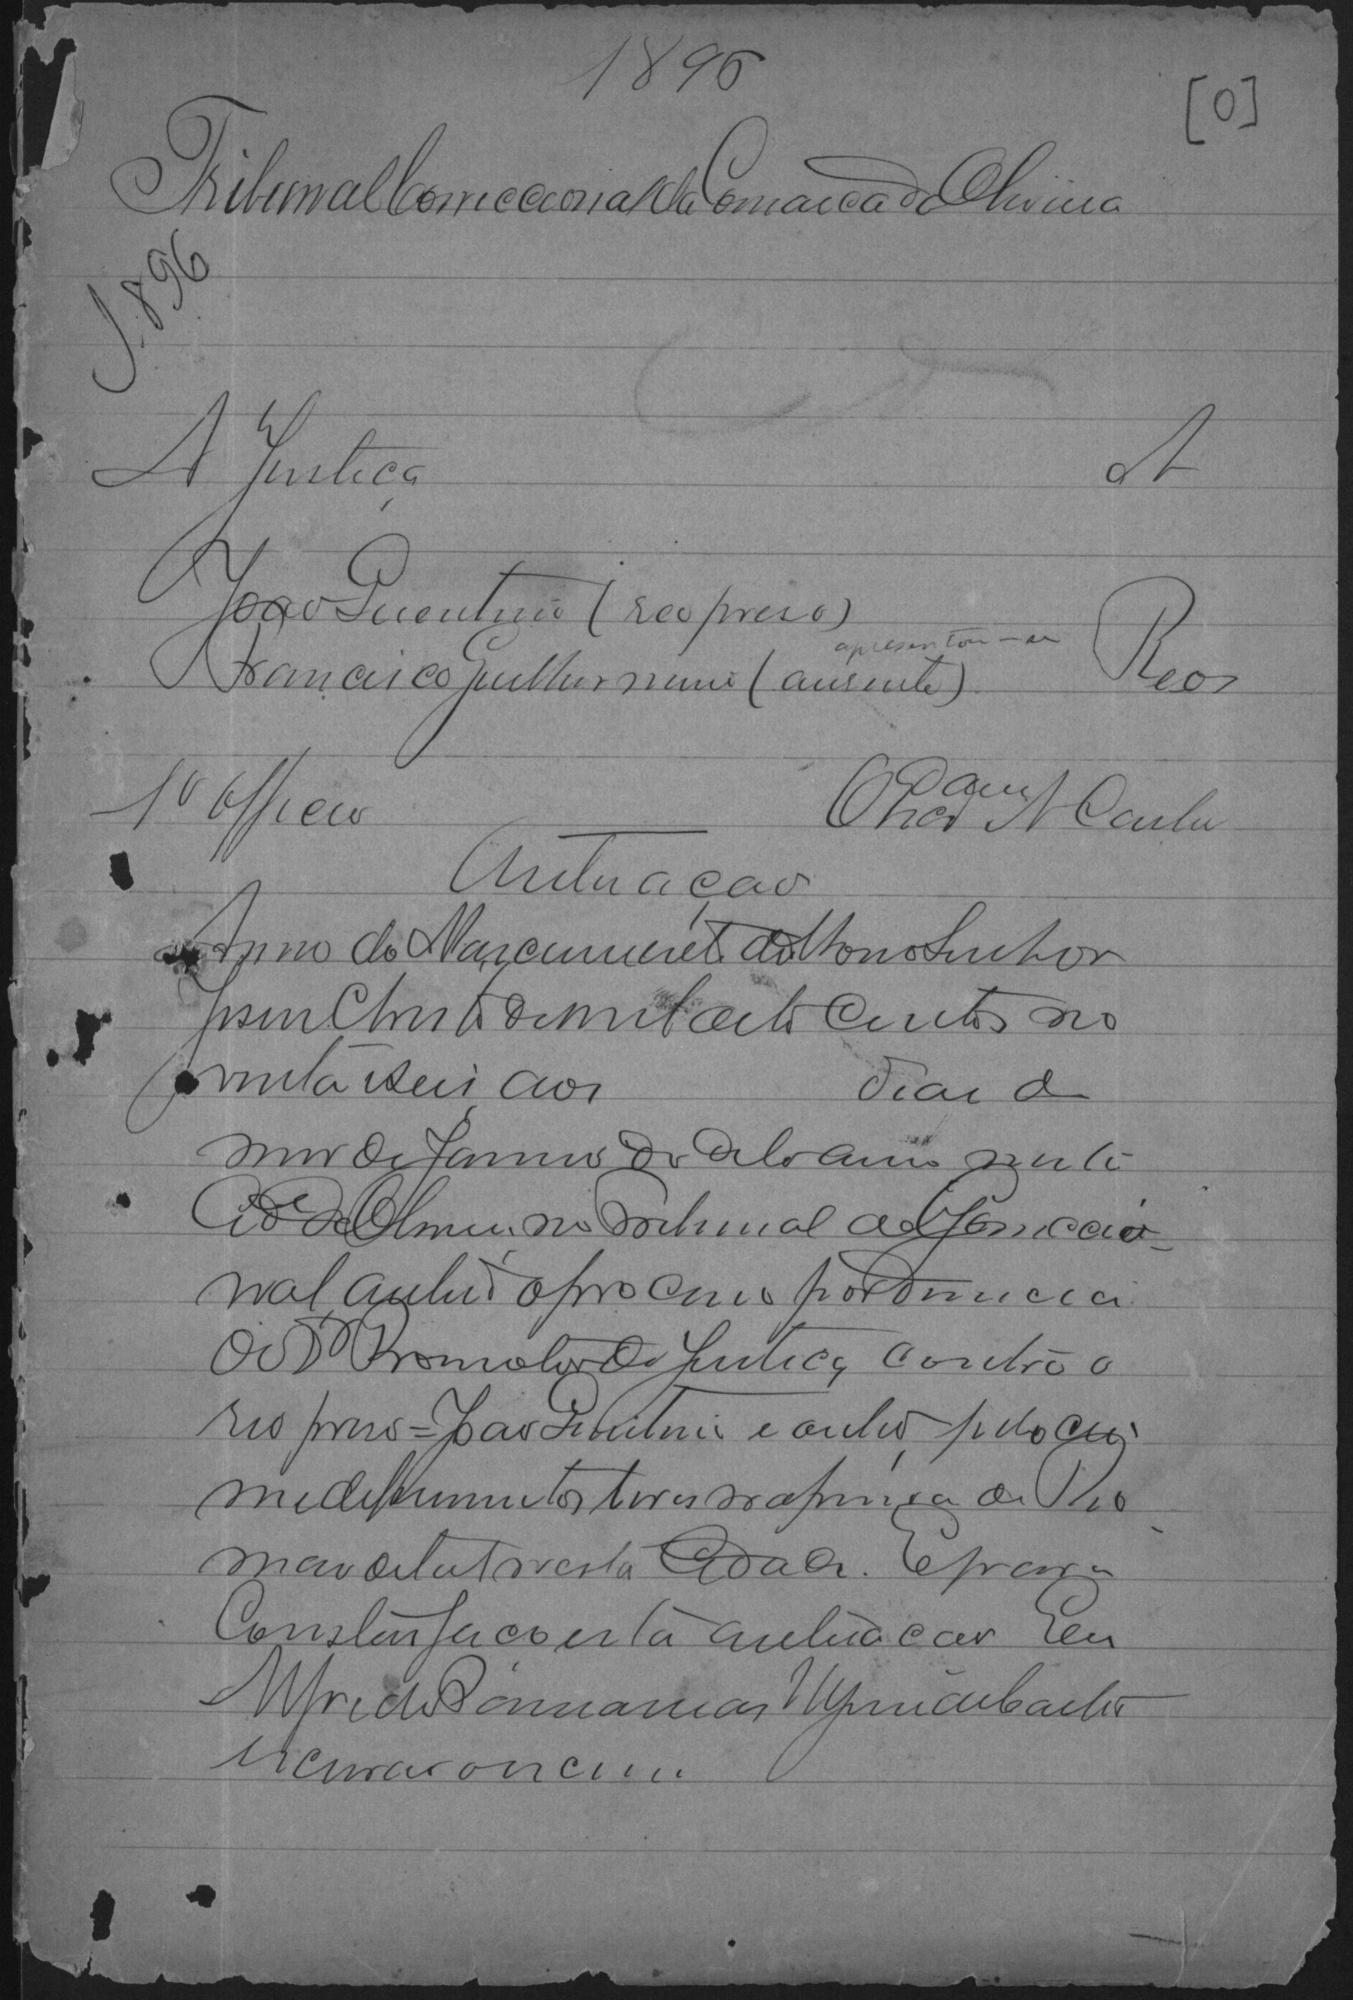 1896
[0]
Tribunal Correccional da Comarca de Oliveira
1896
A Justiça A
João Quintino (reo preso)
apresentou-se
Francisco Guilhermino (ausente) Reos
1º Officio
Autuação
Anno do Nascimento de Nosso Senhor
Jesus Christo de mil oito centos no
venta e seis aos dias d
mez de Janeiro do dito anno nesta
Cidᵉ de Olivᵃ no Tribunal Correccio-
nal, autuo o processo por denuncia
do Dʳ Promotor de Justiça contra o
reo preso = João Quintino e outro, pelo cri
me de ferimentos leves na pessoa de
nesta Cidade. E para
Constar faço esta autuação Eu
Alfredo
escrivão o escrevi